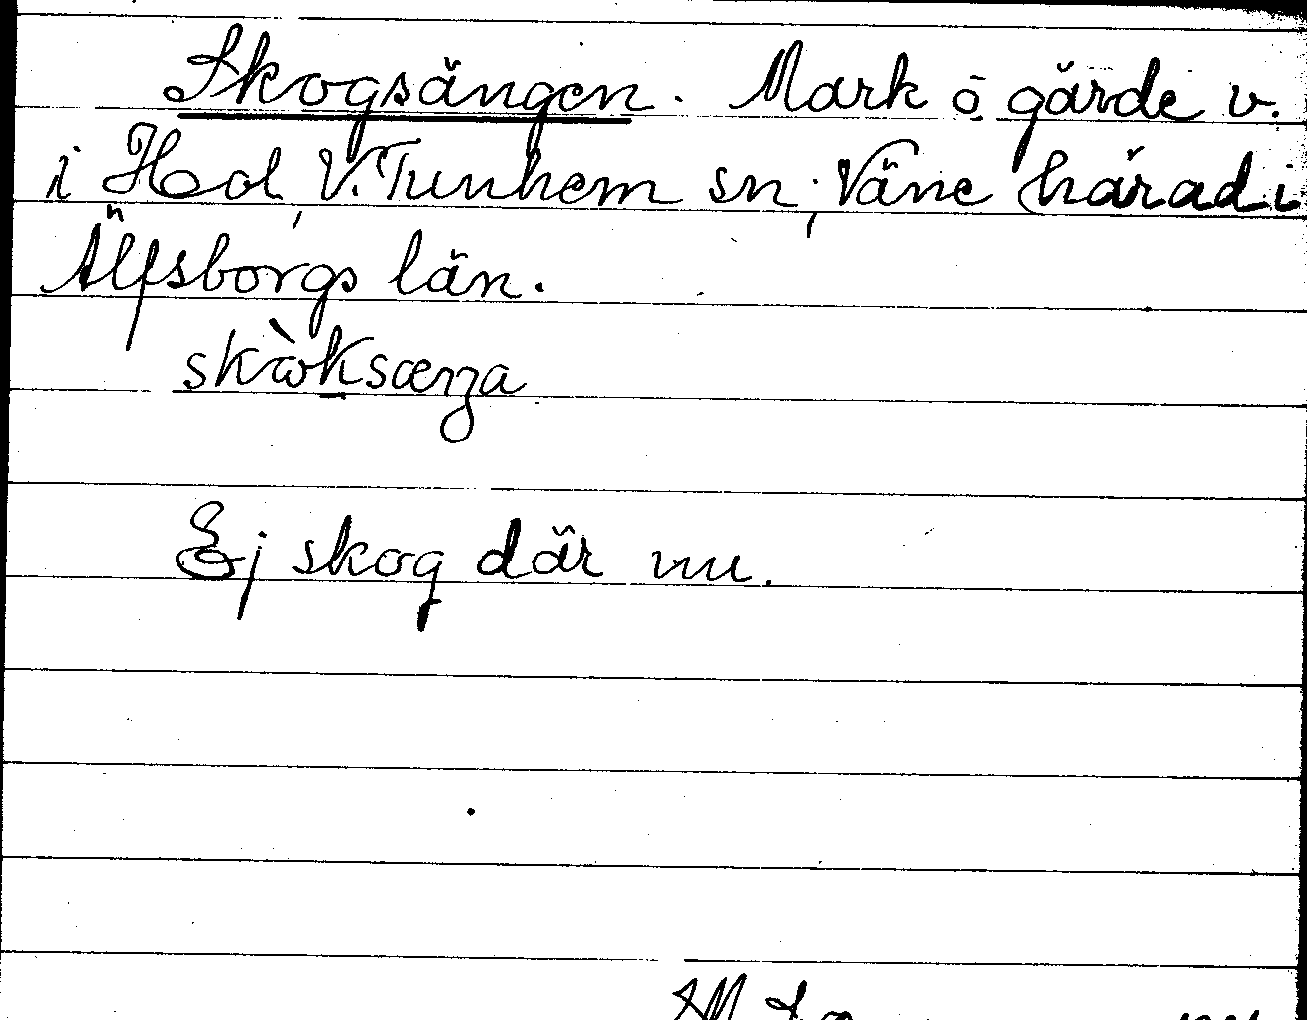 Skogsängen. Mark o gärde v.
i Hol, V. Tunhem sn; Väne härad i
Älfsborgs län.
skὼksæŋa
Ej skog där nu.